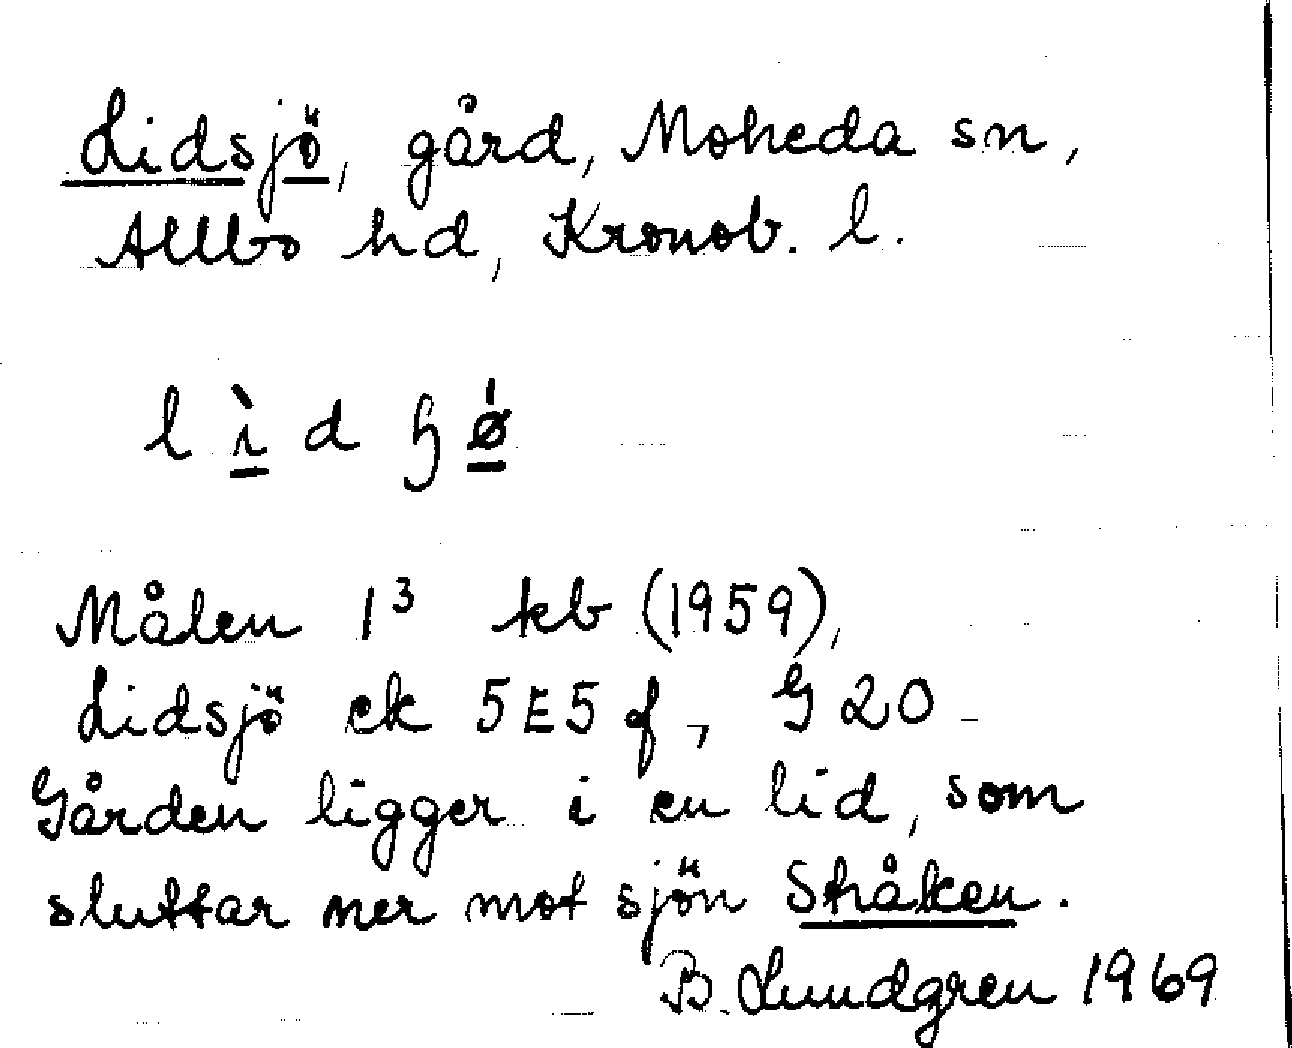 Lidsjö, gård, Moheda sn,
Allbo hd, Kronob. l.
l ì d ɧ ǿ
Målen 1³ kb (1959),
Lidsjö ek 5E5f, G20
Gården ligger i en lid, som
sluttar ner mot sjön Stråken.
B. Lundgren 1969